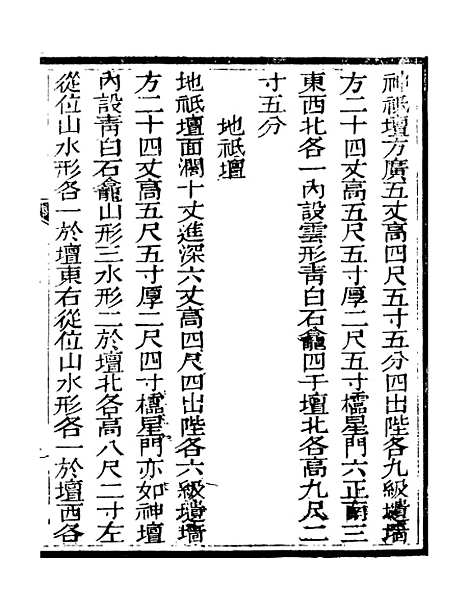 神祇壇方廣五丈高四尺五寸五分四出陛各九級壝墻
方二十四丈高五尺五寸厚二尺五寸櫺星門六正南三
東西北各一內設雲形青白石龕四于壇北各高九尺二
寸五分
地祇壇
地祇壇面濶十丈進深六丈高四尺四出陛各六級壝墻
方二十四丈高五尺五寸厚二尺四寸櫺星門亦如神壇
內設青白石龕山形三水形二於壇北各高八尺二寸左
從位山水形各一於壇東右從位山水形各一於壇西各